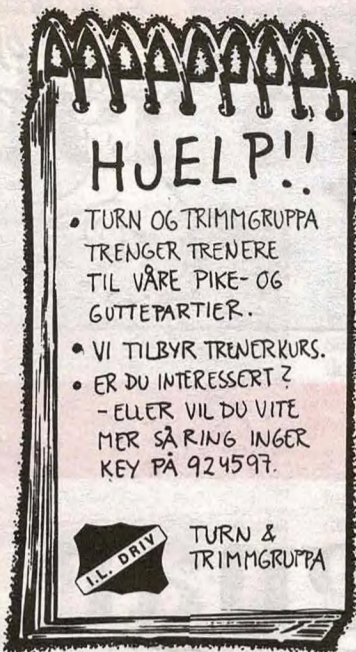 HJELP!!
• TURN OG TRIMMGRUPPA
TRENGER TRENERE
TIL VÅRE PIKE- OG
GUTTEPARTIER.
• VI TILBYR TRENERKURS.
• ER DU INTERESSERT?
- ELLER VIL DU VITE
MER SÅ RING INGER
KEY PÅ 924597.
I.L. DRIV
TURN &
TRIMMGRUPPA